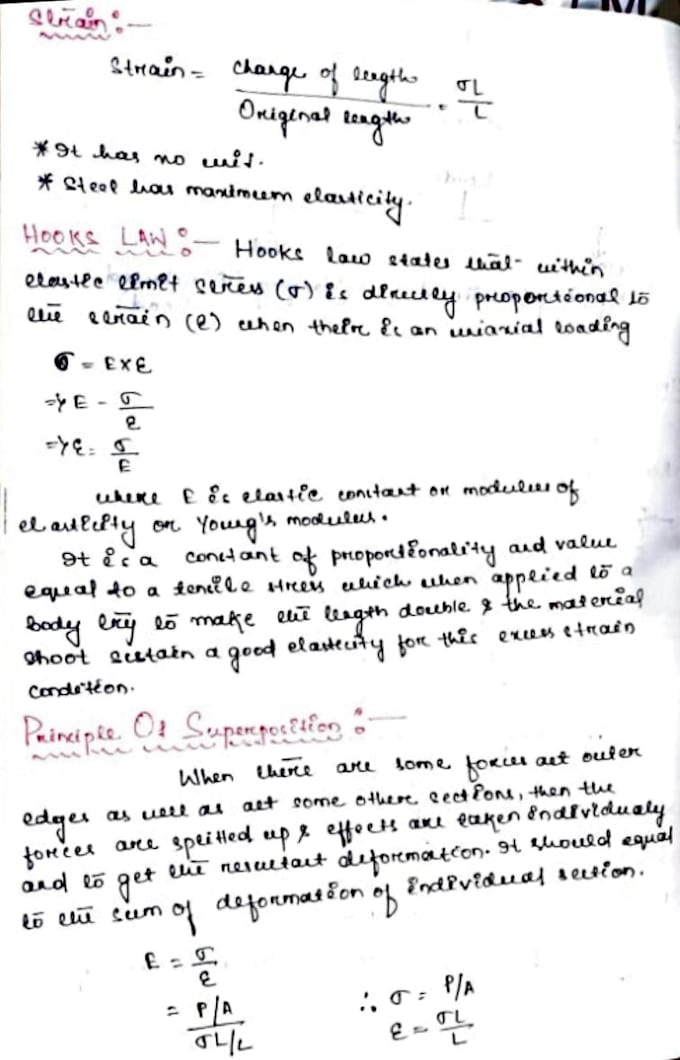 Strain :—
Strain = change of length / Original length = σL / L
* It has no unit.
* Steel has maximum elasticity.
HOOKS LAW :— Hooks law states that within
elastic limit stress (σ) is directly proportional to
the strain (e) when their is an uniaxial loading
σ = E×ε
⇒ E - σ / e
⇒ ε = σ / E
where E is elastic constant or modulus of
elasticity or Young's modulus.
It is a constant of proportionality and value
equal to a tensile stress which when applied to a
body try to make the length double & the material
shoot sustain a good elasticity for this excess strain
condition.
Principle Of Superposition :—
When there are some forces act outer
edges as well as act some other sections, then the
forces are splitted up & effects are taken individualy
and to get the resultant deformation. It should equal
to the sum of deformation of individual section.
E = σ / ε
= P/A / σL/L ∴ σ = P/A
ε = σL / L